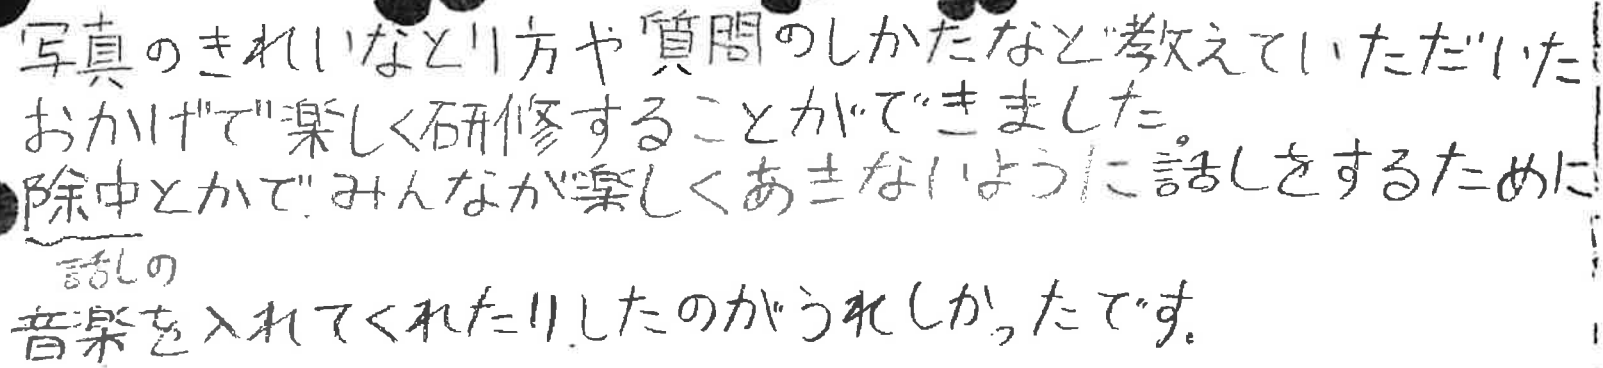 写真のきれいなとり方や質問のしかたなど教えていただいた
おかげで楽しく研修することができました。
除中とかでみんなが楽しくあきないように話しをするために
話しの
音楽を入れてくれたりしたのがうれしかったです。